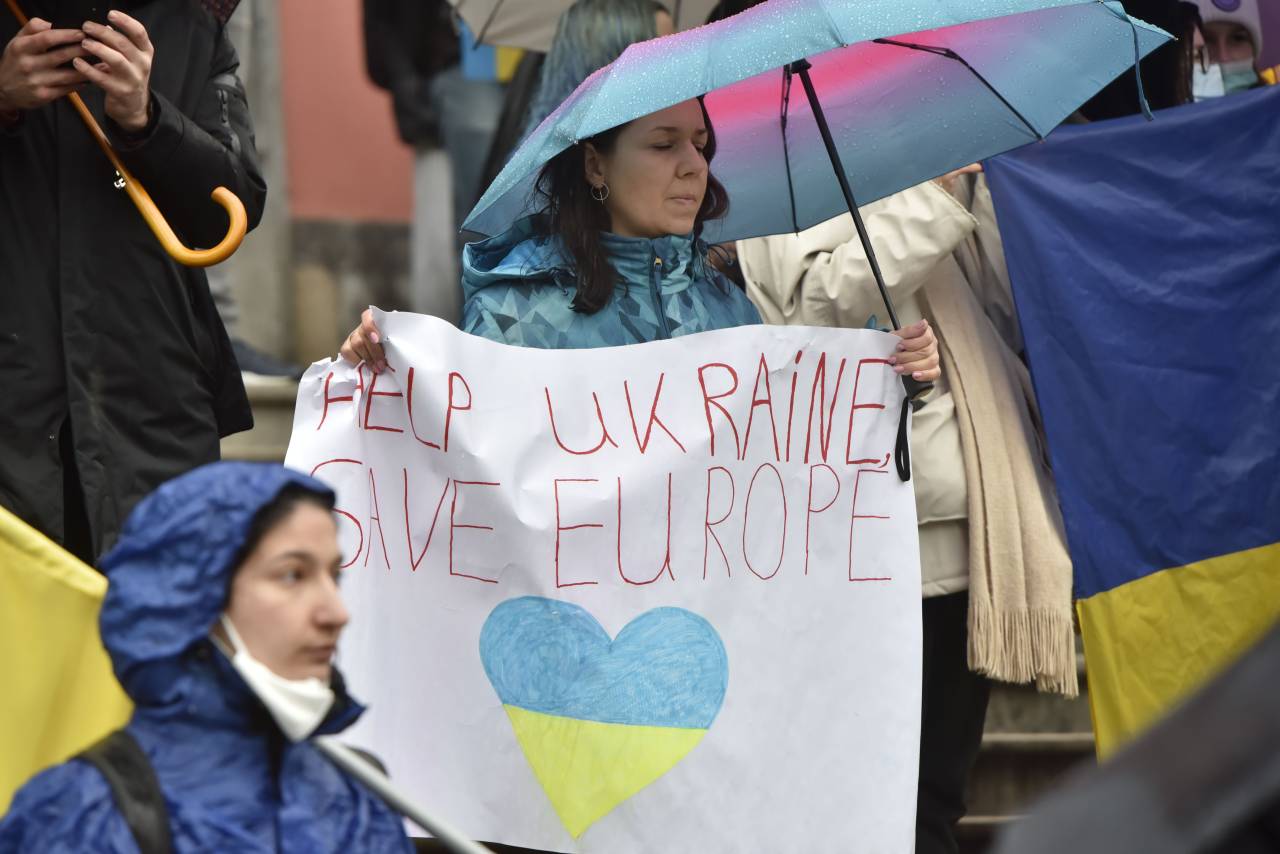 HELP UKRAINE,
SAVE EUROPE